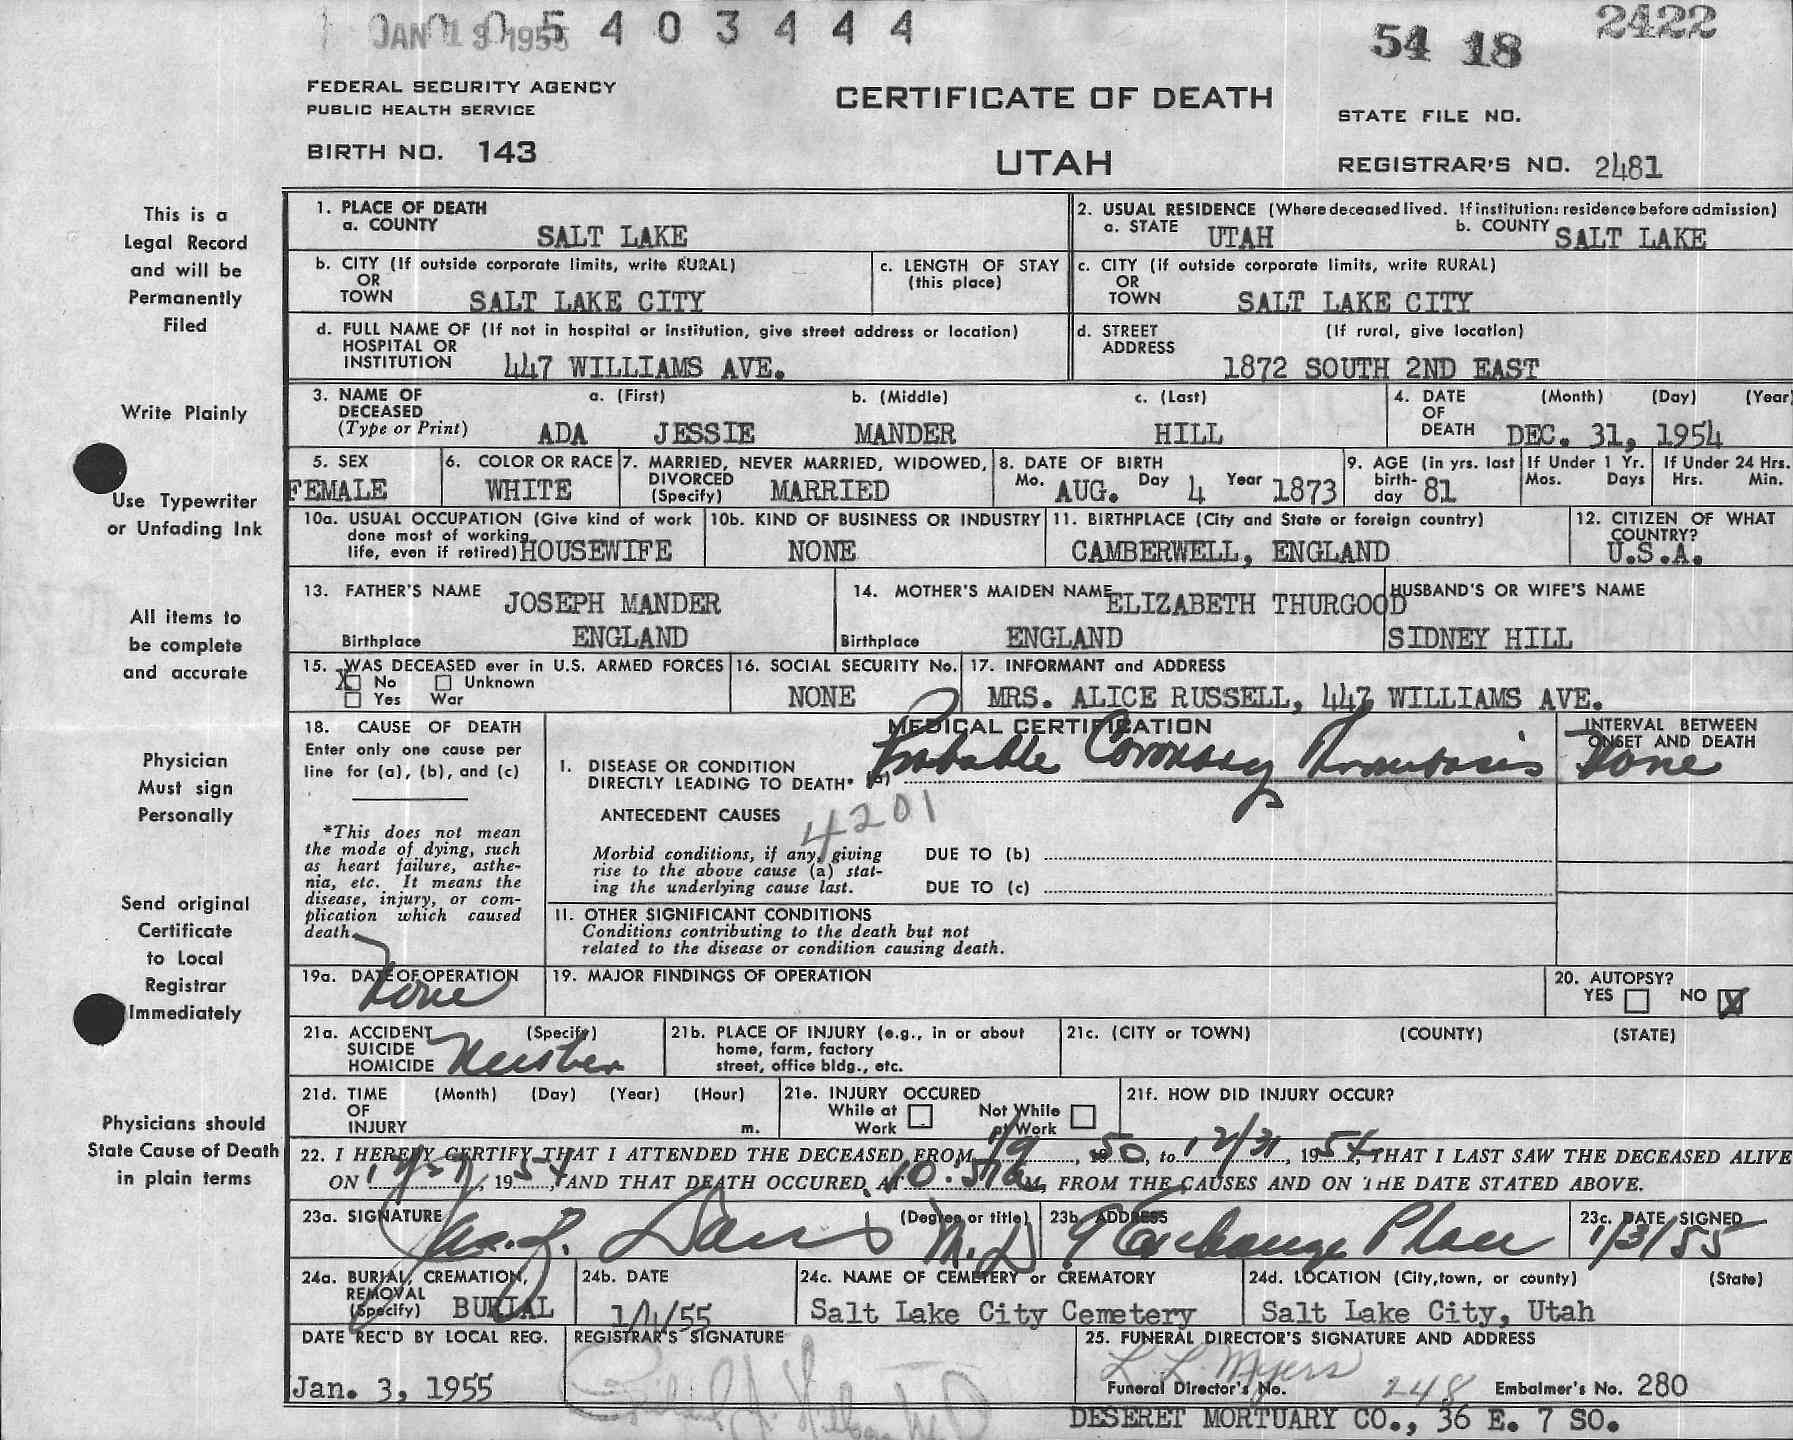 JAN 1955 5 4 0 3 4 4 4
54 18 2422
FEDERAL SECURITY AGENCY
PUBLIC HEALTH SERVICE
BIRTH NO. 143
CERTIFICATE OF DEATH
UTAH
STATE FILE NO.
REGISTRAR'S NO. 2481
This is a
Legal Record
and will be
Permanently
Filed
Write Plainly
Use Typewriter
or Unfading Ink
All items to
be complete
and accurate
Physician
Must sign
Personally
Send original
Certificate
to Local
Registrar
Immediately
Physicians should
State Cause of Death
in plain terms
1. PLACE OF DEATH
a. COUNTY SALT LAKE
2. USUAL RESIDENCE (Where deceased lived. If institution: residence before admission)
a. STATE UTAH b. COUNTY SALT LAKE
b. CITY (If outside corporate limits, write RURAL)
OR
TOWN SALT LAKE CITY
c. LENGTH OF STAY
(this place)
c. CITY (if outside corporate limits, write RURAL)
OR
TOWN SALT LAKE CITY
d. FULL NAME OF (If not in hospital or institution, give street address or location)
HOSPITAL OR
INSTITUTION 447 WILLIAMS AVE.
d. STREET (If rural, give location)
ADDRESS
1872 SOUTH 2ND EAST
3. NAME OF a. (First) b. (Middle) c. (Last)
DECEASED
(Type or Print) ADA JESSIE MANDER HILL
4. DATE (Month) (Day) (Year)
OF
DEATH DEC. 31, 1954
5. SEX
FEMALE
6. COLOR OR RACE
WHITE
7. MARRIED, NEVER MARRIED, WIDOWED,
DIVORCED
(Specify) MARRIED
8. DATE OF BIRTH
Mo. AUG. Day 4 Year 1873
9. AGE (in yrs. last
birth-
day 81
If Under 1 Yr.
Mos. Days
If Under 24 Hrs.
Hrs. Min.
10a. USUAL OCCUPATION (Give kind of work
done most of working
life, even if retired) HOUSEWIFE
10b. KIND OF BUSINESS OR INDUSTRY
NONE
11. BIRTHPLACE (City and State or foreign country)
CAMBERWELL, ENGLAND
12. CITIZEN OF WHAT
COUNTRY?
U.S.A.
13. FATHER'S NAME JOSEPH MANDER
Birthplace ENGLAND
14. MOTHER'S MAIDEN NAME ELIZABETH THURGOOD
Birthplace ENGLAND
HUSBAND'S OR WIFE'S NAME
SIDNEY HILL
15. WAS DECEASED ever in U.S. ARMED FORCES
X No Unknown
Yes War
16. SOCIAL SECURITY No.
NONE
17. INFORMANT and ADDRESS
MRS. ALICE RUSSELL, 447 WILLIAMS AVE.
18. CAUSE OF DEATH
Enter only one cause per
line for (a), (b), and (c)
*This does not mean
the mode of dying, such
as heart failure, asthe-
nia, etc. It means the
disease, injury, or com-
plication which caused
death.
MEDICAL CERTIFICATION
I. DISEASE OR CONDITION
DIRECTLY LEADING TO DEATH* (a) Probable Coronary Thrombosis
INTERVAL BETWEEN
ONSET AND DEATH
None
ANTECEDENT CAUSES
4201
Morbid conditions, if any, giving
rise to the above cause (a) stat-
ing the underlying cause last.
DUE TO (b)
DUE TO (c)
II. OTHER SIGNIFICANT CONDITIONS
Conditions contributing to the death but not
related to the disease or condition causing death.
19a. DATE OF OPERATION
None
19. MAJOR FINDINGS OF OPERATION
20. AUTOPSY?
YES NO X
21a. ACCIDENT (Specify)
SUICIDE
HOMICIDE Neither
21b. PLACE OF INJURY (e.g., in or about
home, farm, factory
street, office bldg., etc.
21c. (CITY or TOWN) (COUNTY) (STATE)
21d. TIME (Month) (Day) (Year) (Hour)
OF
INJURY m.
21e. INJURY OCCURED
While at Work
Not While at Work
21f. HOW DID INJURY OCCUR?
22. I HEREBY CERTIFY THAT I ATTENDED THE DECEASED FROM 1/9, 1950, to 12/31, 1954, THAT I LAST SAW THE DECEASED ALIVE
ON 1954, AND THAT DEATH OCCURED AT M, FROM THE CAUSES AND ON THE DATE STATED ABOVE.
23a. SIGNATURE (Degree or title)
Davis M.D
23b. ADDRESS
9 Exchange Place
23c. DATE SIGNED
1/3/55
24a. BURIAL, CREMATION,
REMOVAL
(Specify) BURIAL
24b. DATE
1/4/55
24c. NAME OF CEMETERY or CREMATORY
Salt Lake City Cemetery
24d. LOCATION (City, town, or county) (State)
Salt Lake City, Utah
DATE REC'D BY LOCAL REG.
Jan. 3, 1955
REGISTRAR'S SIGNATURE
25. FUNERAL DIRECTOR'S SIGNATURE AND ADDRESS
L. L. Myers
Funeral Director's No. 248 Embalmer's No. 280
DESERET MORTUARY CO., 36 E. 7 SO.